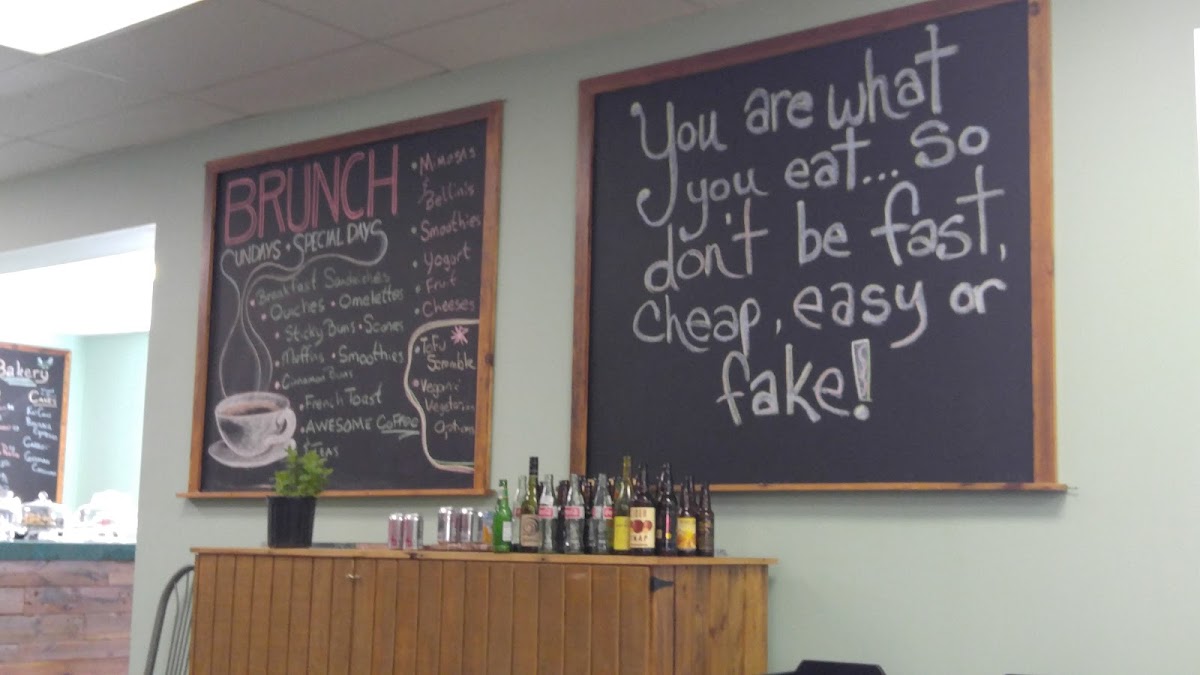 BRUNCH
SUNDAYS • SPECIAL DAYS
• Breakfast Sandwiches
• Quiches • Omelettes
• Sticky Buns • Scones
• Muffins • Smoothies
• Cinnamon Buns
• French Toast
• AWESOME COFFEE
& TEAS
• Mimosas
&
Bellinis
• Smoothies
• Yogurt
• Fruit
• Cheeses
• Tofu
Scramble
• Vegan &
Vegetarian
Options
You are what
you eat... so
don't be fast,
cheap, easy or
fake!
Bakery